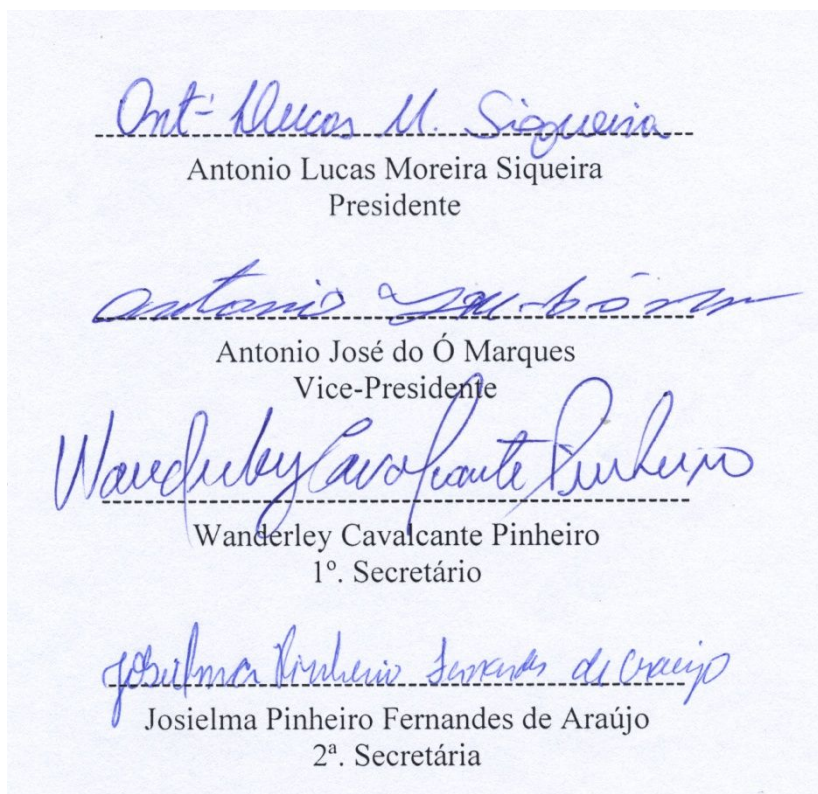 Ant- Lucas M. Siqueira
Antonio Lucas Moreira Siqueira
Presidente
Antonio
Antonio José do Ó Marques
Vice-Presidente
Wanderley Cavalcante Pinheiro
Wanderley Cavalcante Pinheiro
1º. Secretário
Josielma Pinheiro Fernandes de Araújo
Josielma Pinheiro Fernandes de Araújo
2ª. Secretária